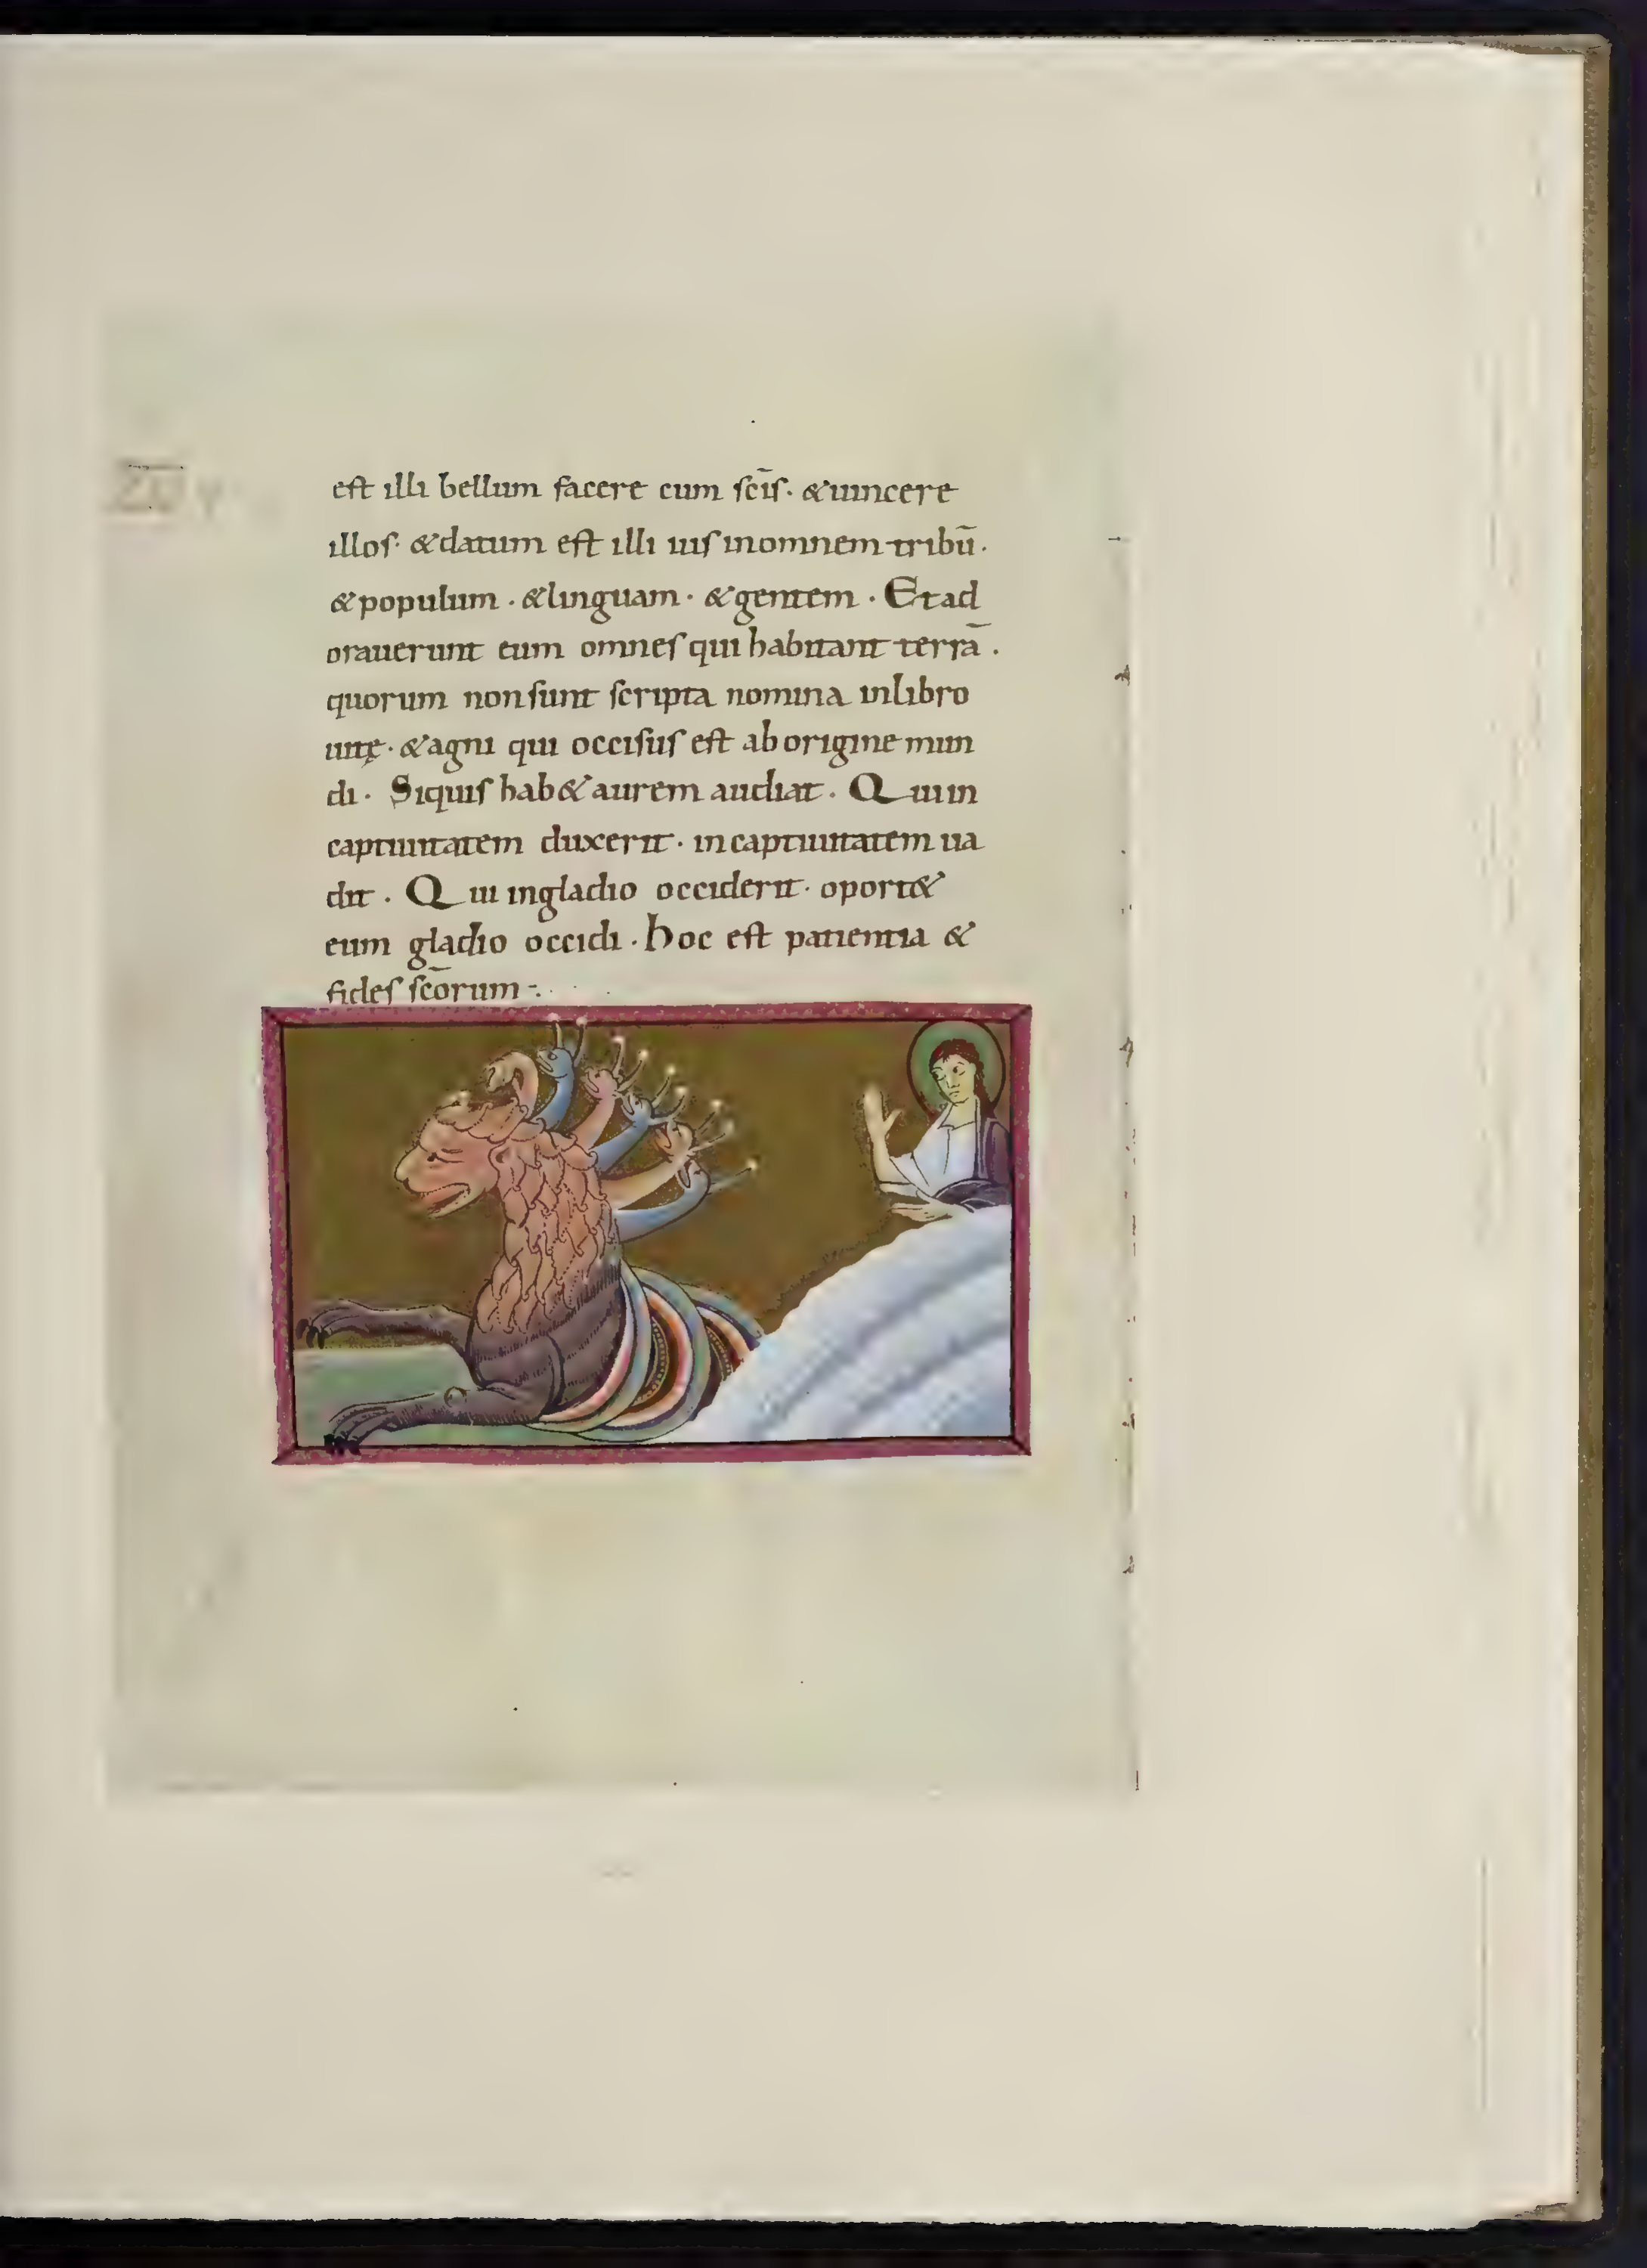 est illi bellum facere cum sc̄is· &uincere
illos· &datum est illi ius inomnem tribū·
&populum · &linguam · &gentem · Et ad
orauerunt eum omnes qui habitant terrā·
quorum non sunt scripta nomina inlibro
uitę· &agni qui occisus est ab origine mun
di· Siquis hab& aurem audiat· Qui in
captiuitatem duxerit· in captiuitatem ua
dit· Qui ingladio occiderit· oport&
eum gladio occidi· hoc est patientia &
fides sc̄orum